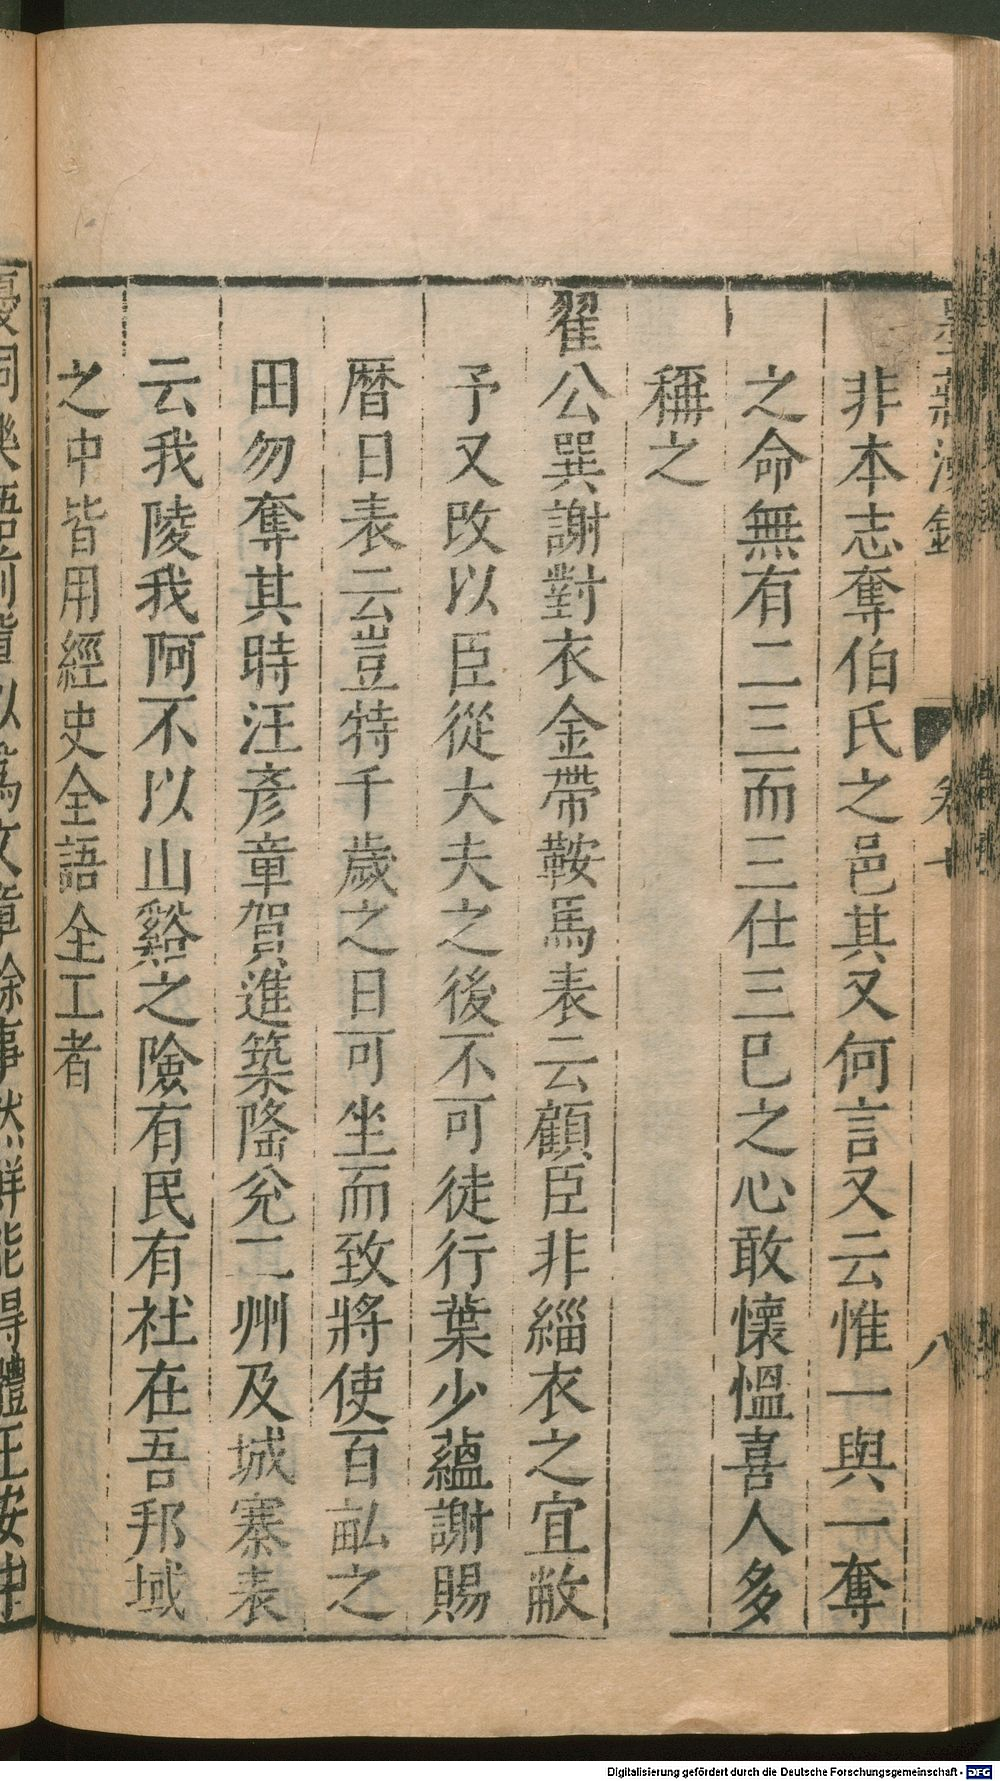 墨莊漫錄 卷十 八
非本志奪伯氏之邑其又何言又云惟一與一奪
之命無有二三而三仕三巳之心敢懷慍喜人多
稱之
翟公巽謝對衣金帶鞍馬表云顧臣非緇衣之宜敝
予又改以臣從大夫之後不可徒行葉少蘊謝賜
曆日表云豈特千歲之日可坐而致將使百畝之
田勿奪其時汪彥章賀進築隆兊二州及城寨表
云我陵我阿不以山谿之險有民有社在吾邦域
之中皆用經史全語全工者
Digitalisierung gefördert durch die Deutsche Forschungsgemeinschaft - DFG